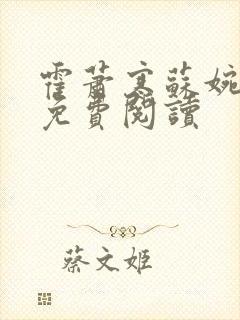 霍蕭寒蘇婉
免費閱讀
蔡文姬